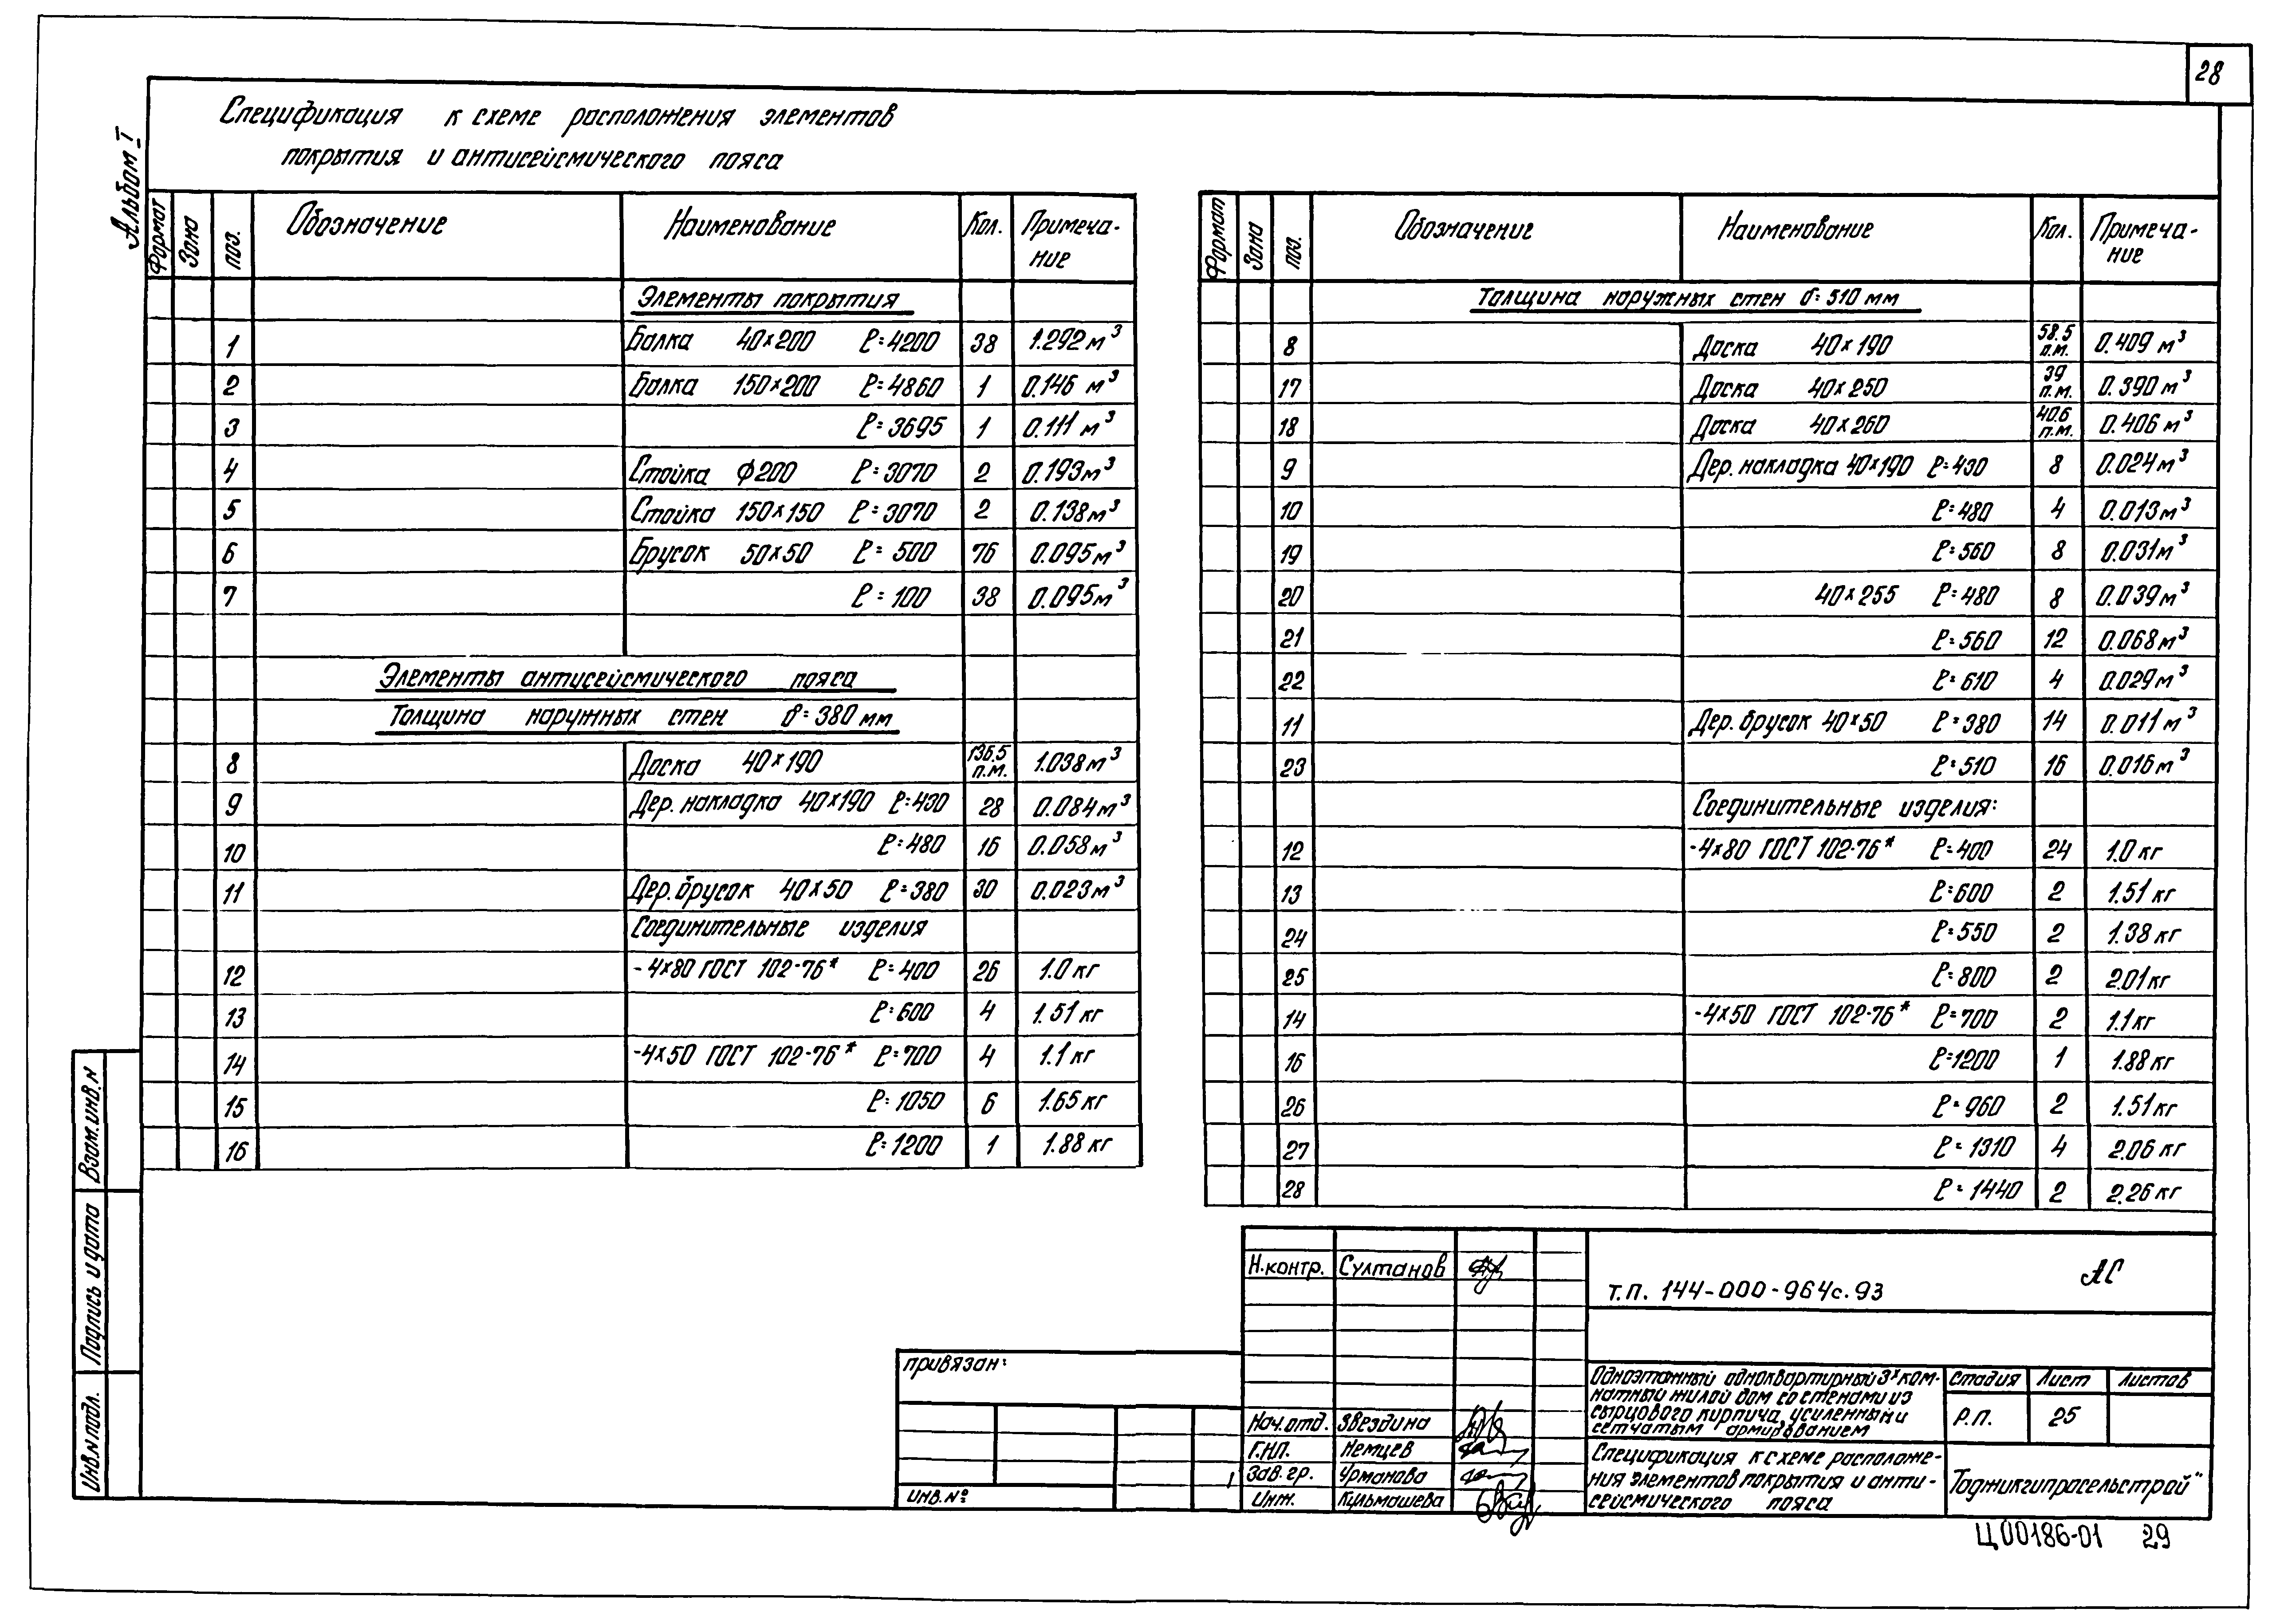 28
Альбом I
Спецификация к схеме расположения элементов
покрытия и антисейсмического пояса
Формат Зона поз. Обозначение Наименование Кол. Примеча-
ние
Элементы покрытия
1 Балка 40×200 ℓ=4200 38 1.292 м³
2 Балка 150×200 ℓ=4860 1 0.146 м³
3 ℓ=3695 1 0.111 м³
4 Стойка ф200 ℓ=3070 2 0.193 м³
5 Стойка 150×150 ℓ=3070 2 0.138 м³
6 Брусок 50×50 ℓ=500 76 0.095 м³
7 ℓ=100 38 0.095 м³
Элементы антисейсмического пояса
Толщина наружных стен δ=380 мм
8 Доска 40×190 136.5 п.м. 1.038 м³
9 Дер. накладка 40×190 ℓ=430 28 0.084 м³
10 ℓ=480 16 0.058 м³
11 Дер. брусок 40×50 ℓ=380 30 0.023 м³
Соединительные изделия
12 -4×80 ГОСТ 102-76* ℓ=400 26 1.0 кг
13 ℓ=600 4 1.51 кг
14 -4×50 ГОСТ 102-76* ℓ=700 4 1.1 кг
15 ℓ=1050 6 1.65 кг
16 ℓ=1200 1 1.88 кг
Формат Зона поз. Обозначение Наименование Кол. Примеча-
ние
Толщина наружных стен δ=510 мм
8 Доска 40×190 58.5 п.м. 0.409 м³
17 Доска 40×250 39 п.м. 0.390 м³
18 Доска 40×260 40.6 п.м. 0.406 м³
9 Дер. накладка 40×190 ℓ=430 8 0.024 м³
10 ℓ=480 4 0.013 м³
19 ℓ=560 8 0.031 м³
20 40×255 ℓ=480 8 0.039 м³
21 ℓ=560 12 0.068 м³
22 ℓ=610 4 0.029 м³
11 Дер. брусок 40×50 ℓ=380 14 0.011 м³
23 ℓ=510 16 0.016 м³
Соединительные изделия:
12 -4×80 ГОСТ 102-76* ℓ=400 24 1.0 кг
13 ℓ=600 2 1.51 кг
24 ℓ=550 2 1.38 кг
25 ℓ=800 2 2.01 кг
14 -4×50 ГОСТ 102-76* ℓ=700 2 1.1 кг
16 ℓ=1200 1 1.88 кг
26 ℓ=960 2 1.51 кг
27 ℓ=1310 4 2.06 кг
28 ℓ=1440 2 2.26 кг
Взам. инв. N
Подпись и дата
Инв. N подл.
привязан:
инв. №
1
Н.контр. Султанов
Нач. отд. Звездина
Г.НП. Немцев
Зав. гр. Урманова
Инж. Кульмашева
т.п. 144-000-964с.93 АС
Одноэтажный одноквартирный 3х ком-
натный жилой дом со стенами из
сырцового кирпича, усиленный
сетчатым армированием
Стадия Лист Листов
Р.П. 25
Спецификация к схеме расположе-
ния элементов покрытия и анти-
сейсмического пояса
Таджикгипросельстрой"
Ц00186-01 29